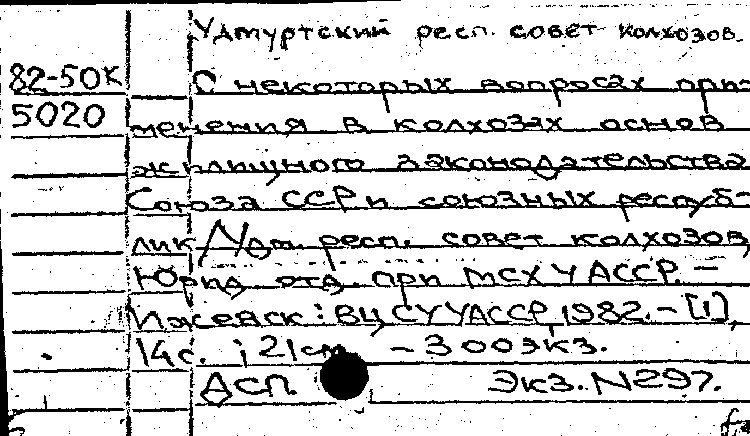 Удмуртский респ. совет колхозов.
82-50К О некоторых вопросах при-
5020 менения в колхозах основ
жилищного законодательства
Союза ССР и союзных респуб-
лик/Удм. респ. совет колхозов,
Юрид. отд. при МСХ УАССР. —
Ижевск: ВЦ СУ УАССР, 1982. - [1],
14 с. ; 21 см - 300 экз.
ДСП. Экз. N 297.